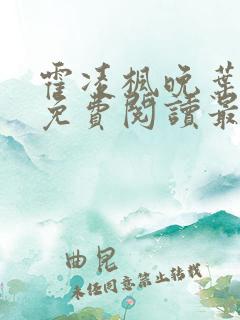 霍凌枫晚葉
免費閱讀最
曲昆
未经同意禁止转载